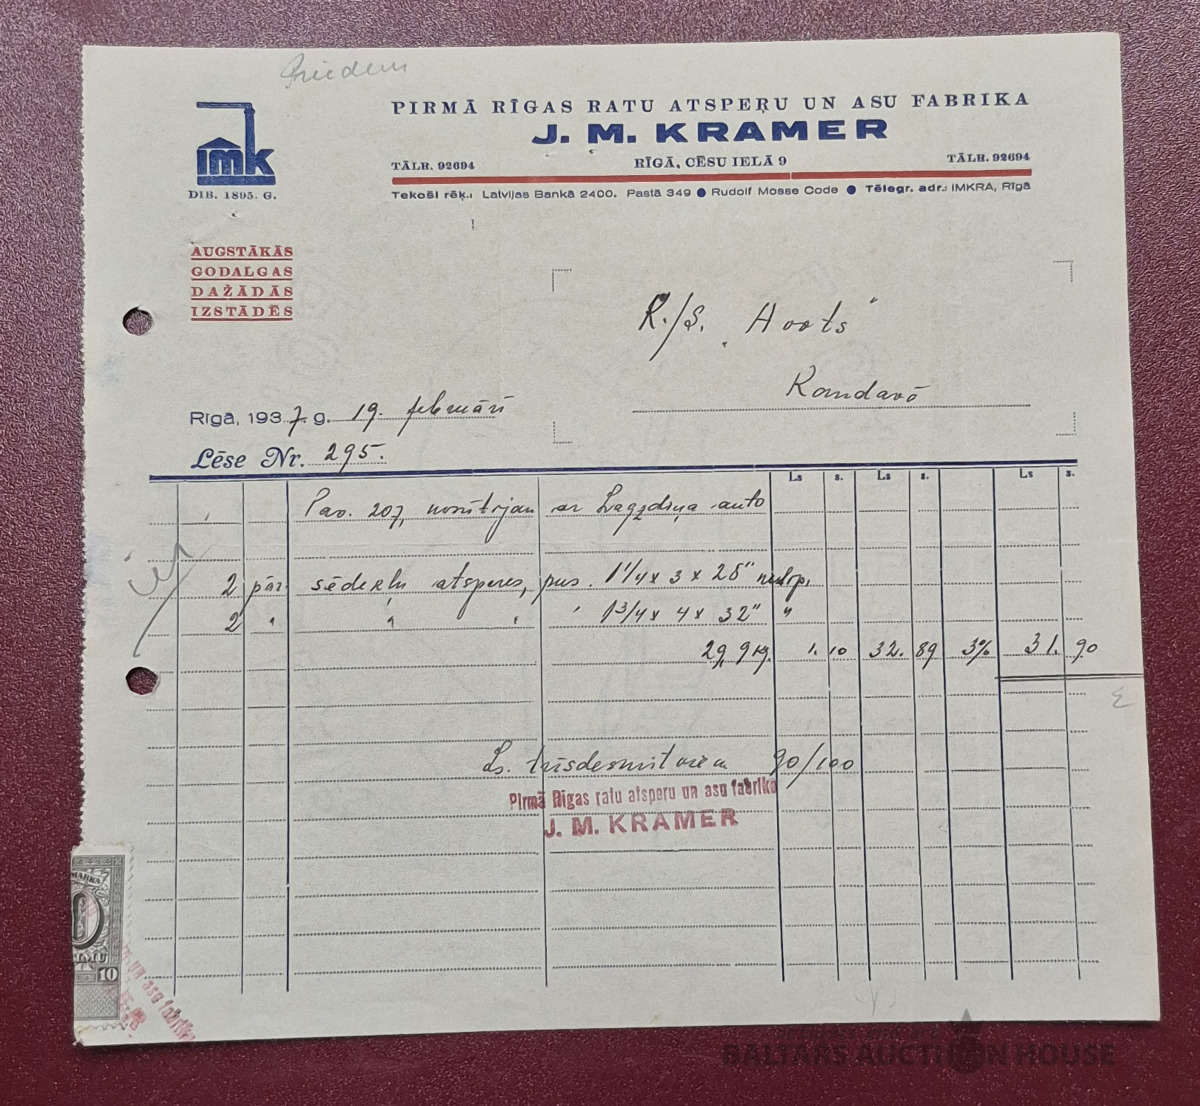 Priedem
PIRMĀ RĪGAS RATU ATSPEŖU UN ASU FABRIKA
J. M. KRAMER
TĀLR. 92694
RĪGĀ, CĒSU IELĀ 9
TĀLR. 92694
Tekoši rēķ.: Latvijas Bankā 2400. Pastā 349 ● Rudolf Mosse Code ● Tēlegr. adr.: IMKRA, Rīgā
imk
DIB. 1895. G.
AUGSTĀKĀS
GODALGAS
DAŽĀDĀS
IZSTĀDĒS
K./S. „Avots"
Kandavā
Rīgā, 1937 g. 19. februārī
Lēse Nr. 295.
Ls s. Ls s. Ls s.
Pav. 207, nosūtījam ar Lagzdiņa auto
2 pār. sēdekļu atsperes, pus. 1¼ x 3 x 28"
2 " " " " 1¾ x 4 x 32" "
29,9 kg. 1. 10 32. 89 3% 31. 90
Ls. trīsdesmitviens 90/100
Pirmā Rīgas ratu atsperu un asu fabrika
J. M. KRAMER
MARKA
10
asu fabrika
BALTARS AUCTION HOUSE